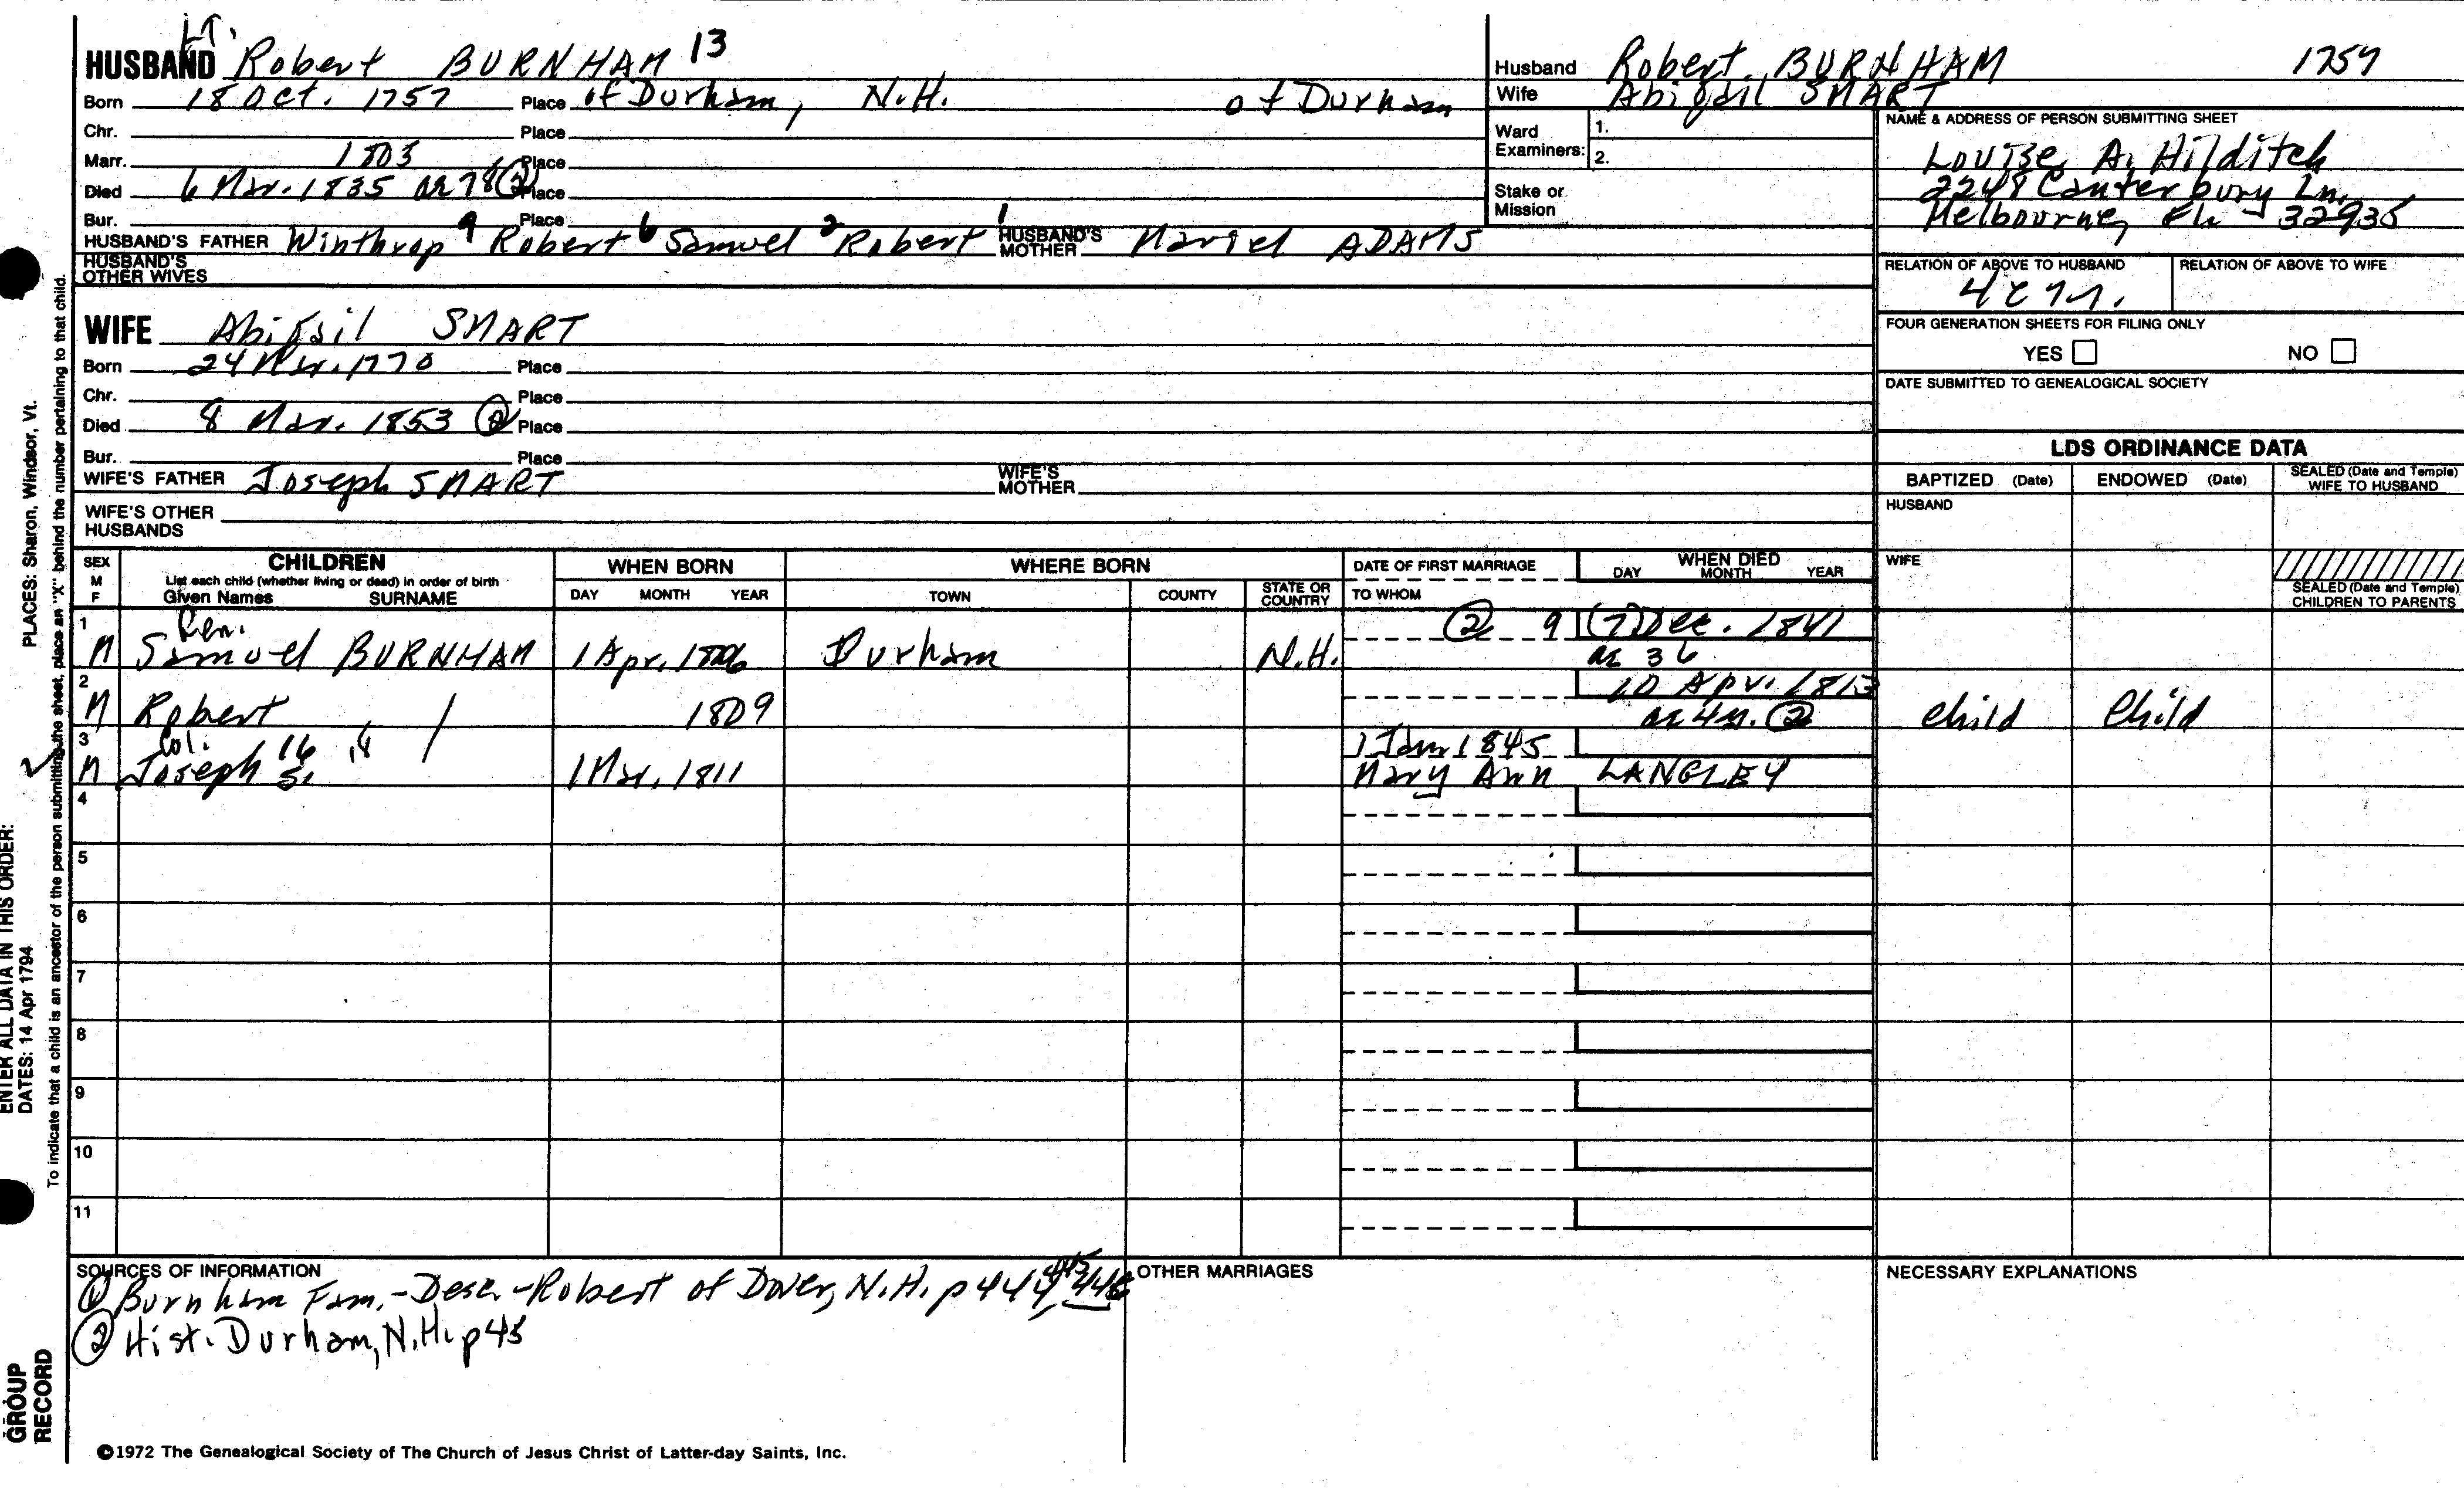 Lt.
HUSBAND Robert BURNHAM 13
Born 18 Oct. 1757 Place of Durham, N.H. of Durham
Chr. Place
Marr. 1803 Place
Died 6 Mar. 1835 ae 78 (2) Place
Bur. Place
HUSBAND'S FATHER Winthrop 9 Robert 6 Samuel 2 Robert 1 HUSBAND'S MOTHER ADAMS
HUSBAND'S OTHER WIVES
WIFE Abigail SMART
Born 24 Mar. 1770 Place
Chr. Place
Died 8 Mar. 1853 (2) Place
Bur. Place
WIFE'S FATHER Joseph SMART WIFE'S MOTHER
WIFE'S OTHER HUSBANDS
Husband Robert BURNHAM 1757
Wife Abigail SMART
Ward Examiners: 1.
2.
Stake or Mission
NAME & ADDRESS OF PERSON SUBMITTING SHEET
Louise A. Hilditch
2248 Canterbury Ln.
Melbourne, Fla 32935
RELATION OF ABOVE TO HUSBAND RELATION OF ABOVE TO WIFE
FOUR GENERATION SHEETS FOR FILING ONLY
YES NO
DATE SUBMITTED TO GENEALOGICAL SOCIETY
LDS ORDINANCE DATA
BAPTIZED (Date) ENDOWED (Date) SEALED (Date and Temple) WIFE TO HUSBAND
HUSBAND
WIFE
SEALED (Date and Temple) CHILDREN TO PARENTS
SEX M F
CHILDREN
List each child (whether living or dead) in order of birth
Given Names SURNAME
WHEN BORN
DAY MONTH YEAR
WHERE BORN
TOWN COUNTY STATE OR COUNTRY
DATE OF FIRST MARRIAGE
TO WHOM
WHEN DIED
DAY MONTH YEAR
1 (2) 9 (7) Dec. 1841
M Samuel BURNHAM 1 Apr. 1806 Durham N.H. ae 36
2 10 Apr. 1813
M Robert " / 1809 ae 4 y. (2) child Child
3 Col. 16 " / 1 Jan 1845
M Joseph S. 1 Mar. 1811 Mary Ann LANGLEY
4
5
6
7
8
9
10
11
SOURCES OF INFORMATION
(1) Burnham Fam. - Desc. - Robert of Dover, N.H. p 444, 445, 446
(2) Hist. Durham, N.H. p 45
OTHER MARRIAGES
NECESSARY EXPLANATIONS
©1972 The Genealogical Society of The Church of Jesus Christ of Latter-day Saints, Inc.
ENTER ALL DATA IN THIS ORDER:
DATES: 14 Apr 1794 PLACES: Sharon, Windsor, Vt.
To indicate that a child is an ancestor of the person submitting the sheet, place an "X" behind the number pertaining to that child.
GROUP
RECORD